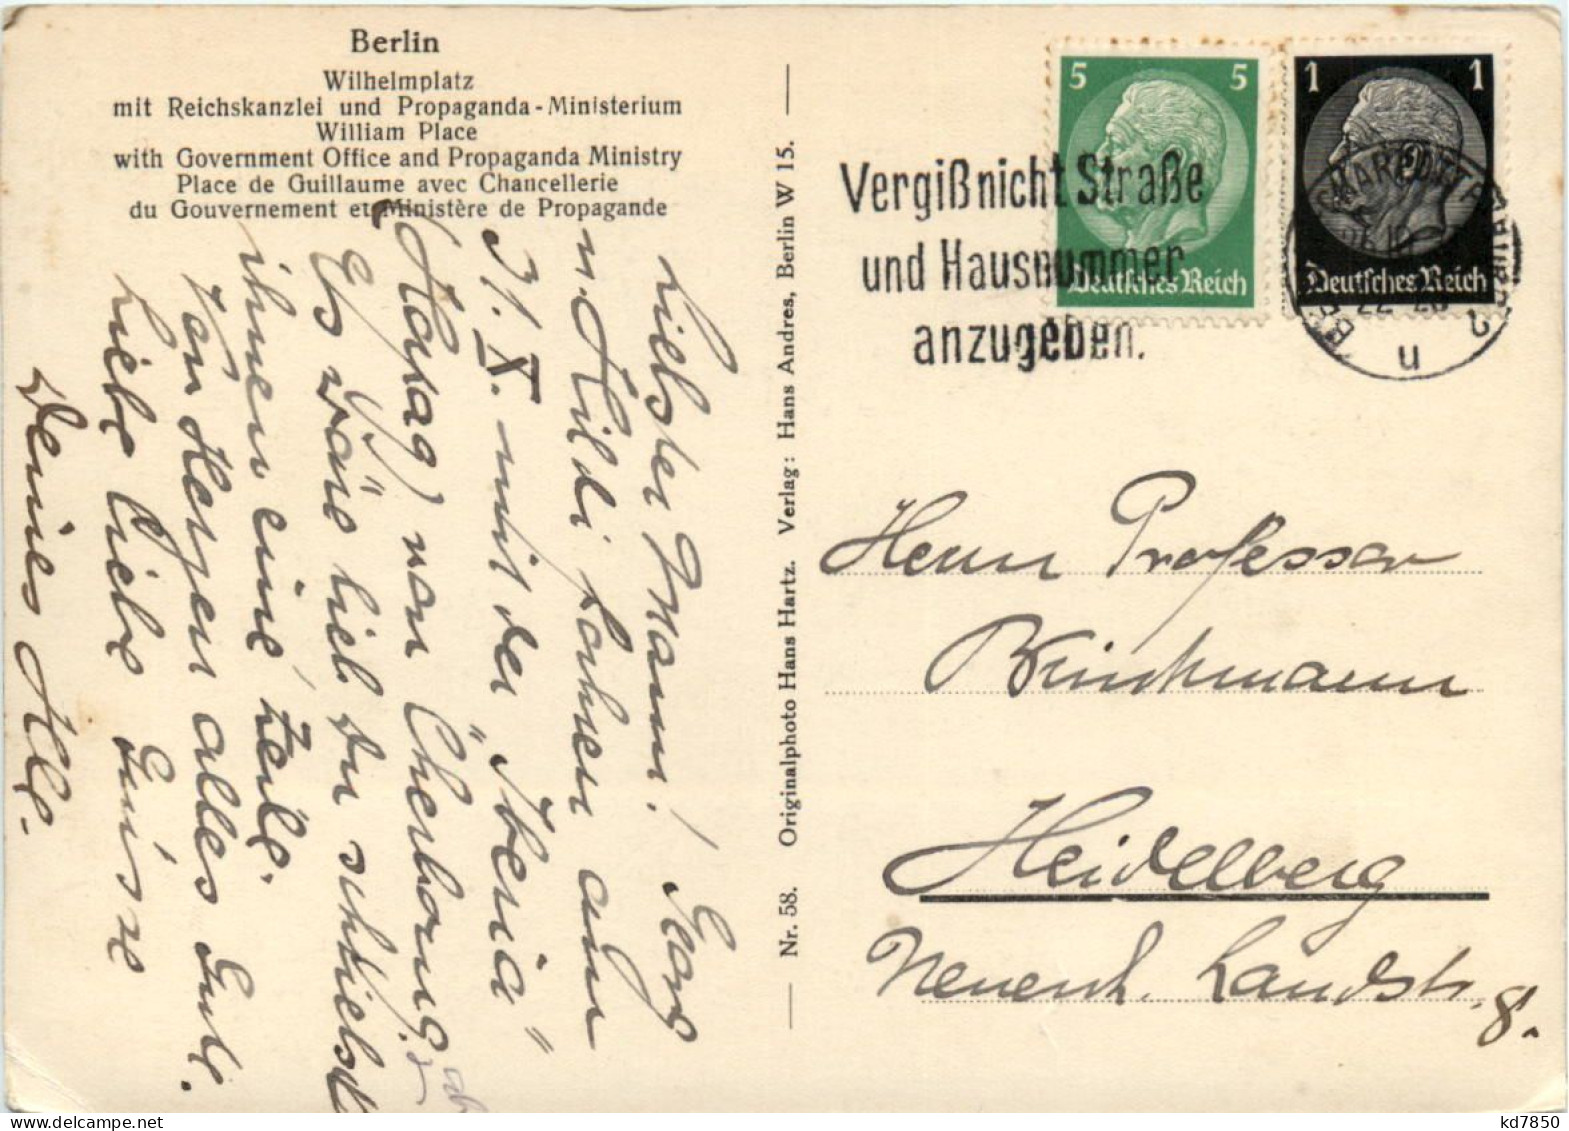 Berlin
Wilhelmplatz
mit Reichskanzlei und Propaganda-Ministerium
William Place
with Government Office and Propaganda Ministry
Place de Guillaume avec Chancellerie
du Gouvernement et Ministère de Propagande
Liebster Mann! Georg
u. Hildi fahren am
31. X. mit der „Iberia"
(Hapag) von Cherbourg
Es wäre lieb Du schriebst
ihnen eine Zeile.
Von Herzen alles Gute.
Liebe liebe Grüsse
Deines
Nr. 58. Originalphoto Hans Hartz. Verlag: Hans Andres, Berlin W 15.
5 5
Deutsches Reich
1 1
Deutsches Reich
Vergiß nicht Straße
und Hausnummer
anzugeben.
u
Herrn Professor
Brinckmann
Heidelberg
Neuenh. Landstr. 8.
kd7850